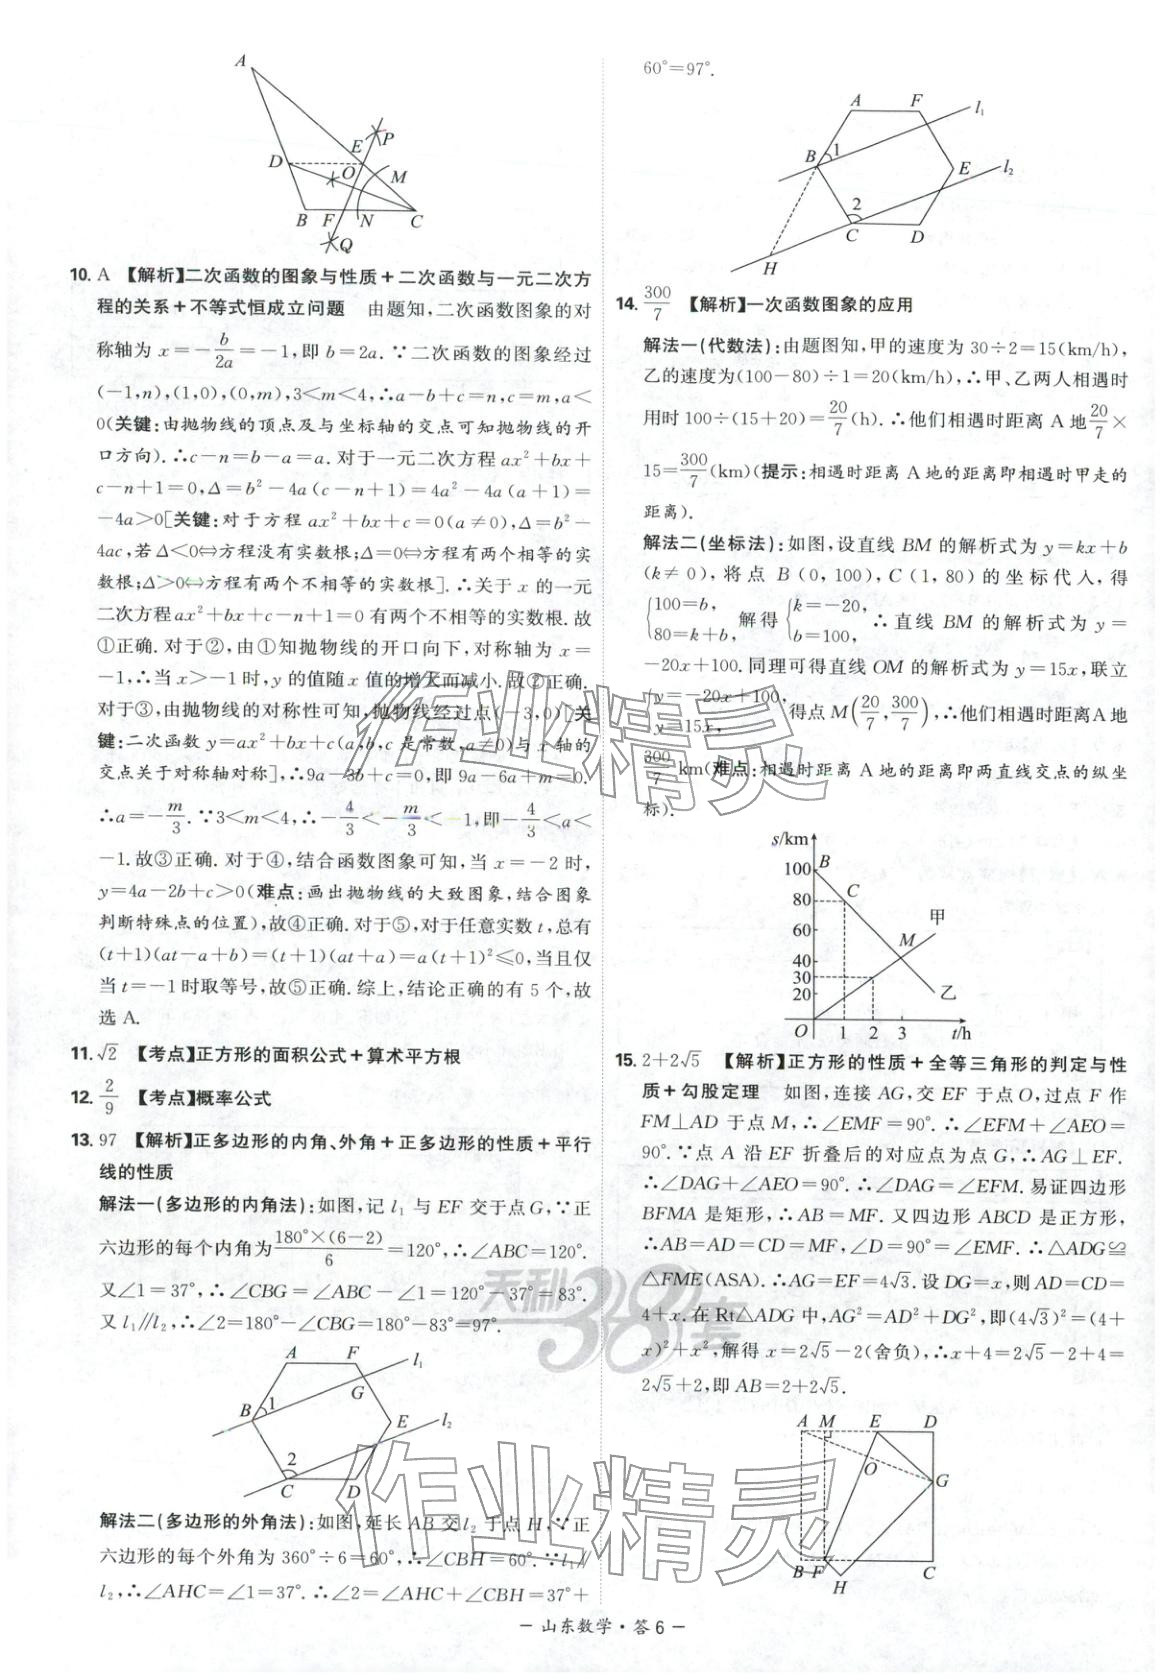 A
P
E
D
O
M
B
F
N
C
Q
10. A 【解析】二次函数的图象与性质+二次函数与一元二次方
程的关系+不等式恒成立问题 由题知,二次函数图象的对
称轴为 x=-b/2a=-1,即 b=2a.∵二次函数的图象经过
(-1,n),(1,0),(0,m),3<m<4,∴a-b+c=n,c=m,a<
0(关键:由抛物线的顶点及与坐标轴的交点可知抛物线的开
口方向).∴c-n=b-a=a.对于一元二次方程 ax²+bx+
c-n+1=0,Δ=b²-4a(c-n+1)=4a²-4a(a+1)=
-4a>0[关键:对于方程 ax²+bx+c=0(a≠0),Δ=b²-
4ac,若Δ<0⇔方程没有实数根;Δ=0⇔方程有两个相等的实
数根;Δ>0⇔方程有两个不相等的实数根].∴关于 x 的一元
二次方程ax²+bx+c-n+1=0 有两个不相等的实数根.故
①正确.对于②,由①知抛物线的开口向下,对称轴为 x=
-1,∴当 x>-1 时,y 的值随 x 值的增大而减小.故②正确.
对于③,由抛物线的对称性可知,抛物线经过点(-3,0)[关
键:二次函数 y=ax²+bx+c(a,b,c 是常数,a≠0)与 x 轴的
交点关于对称轴对称],∴9a-3b+c=0,即 9a-6a+m=0.
∴a=-m/3.∵3<m<4,∴-4/3<-m/3<-1,即-4/3<a<
-1.故③正确.对于④,结合函数图象可知,当 x=-2 时,
y=4a-2b+c>0(难点:画出抛物线的大致图象,结合图象
判断特殊点的位置),故④正确.对于⑤,对于任意实数 t,总有
(t+1)(at-a+b)=(t+1)(at+a)=a(t+1)²≤0,当且仅
当 t=-1 时取等号,故⑤正确.综上,结论正确的有 5 个,故
选 A.
11. √2 【考点】正方形的面积公式+算术平方根
12. 2/9 【考点】概率公式
13. 97 【解析】正多边形的内角、外角+正多边形的性质+平行
线的性质
解法一(多边形的内角法):如图,记 l₁ 与 EF 交于点G,∵正
六边形的每个内角为180°×(6-2)/6=120°,∴∠ABC=120°.
又∠1=37°,∴∠CBG=∠ABC-∠1=120°-37°=83°.
又 l₁∥l₂,∴∠2=180°-∠CBG=180°-83°=97°.
A
F
l₁
G
B
1
E
l₂
2
C
D
解法二(多边形的外角法):如图,延长 AB 交 l₂ 于点 H,∵正
六边形的每个外角为 360°÷6=60°,∴∠CBH=60°.∵l₁∥
l₂,∴∠AHC=∠1=37°.∴∠2=∠AHC+∠CBH=37°+
60°=97°.
A
F
l₁
B
1
E
l₂
2
C
D
H
14. 300/7 【解析】一次函数图象的应用
解法一(代数法):由题图知,甲的速度为 30÷2=15(km/h),
乙的速度为(100-80)÷1=20(km/h),∴甲、乙两人相遇时
用时 100÷(15+20)=20/7(h).∴他们相遇时距离 A 地20/7×
15=300/7(km)(提示:相遇时距离 A 地的距离即相遇时甲走的
距离).
解法二(坐标法):如图,设直线 BM 的解析式为 y=kx+b
(k≠0),将点 B(0,100),C(1,80)的坐标代入,得
{100=b, 80=k+b, 解得 {k=-20, b=100, ∴直线 BM 的解析式为 y=
-20x+100.同理可得直线 OM 的解析式为 y=15x,联立
{y=-20x+100, y=15x, 得点 M(20/7,300/7),∴他们相遇时距离A 地
300/7 km(难点:相遇时距离 A 地的距离即两直线交点的纵坐
标).
s/km
100
B
C
80
60
甲
M
40
30
20
乙
O
1
2
3
t/h
15. 2+2√5 【解析】正方形的性质+全等三角形的判定与性
质+勾股定理 如图,连接 AG,交 EF 于点O,过点 F 作
FM⊥AD 于点 M,∴∠EMF=90°.∴∠EFM+∠AEO=
90°.∵点 A 沿 EF 折叠后的对应点为点 G,∴AG⊥EF.
∴∠DAG+∠AEO=90°.∴∠DAG=∠EFM.易证四边形
BFMA 是矩形,∴AB=MF.又四边形 ABCD 是正方形,
∴AB=AD=CD=MF,∠D=90°=∠EMF.∴△ADG≌
△FME(ASA).∴AG=EF=4√3.设 DG=x,则 AD=CD=
4+x.在 Rt△ADG 中,AG²=AD²+DG²,即(4√3)²=(4+
x)²+x²,解得 x=2√5-2(舍负),∴x+4=2√5-2+4=
2√5+2,即 AB=2+2√5.
A
M
E
D
O
G
B
F
H
C
作业精灵
天利38套
作业精灵
- 山东数学·答 6 -